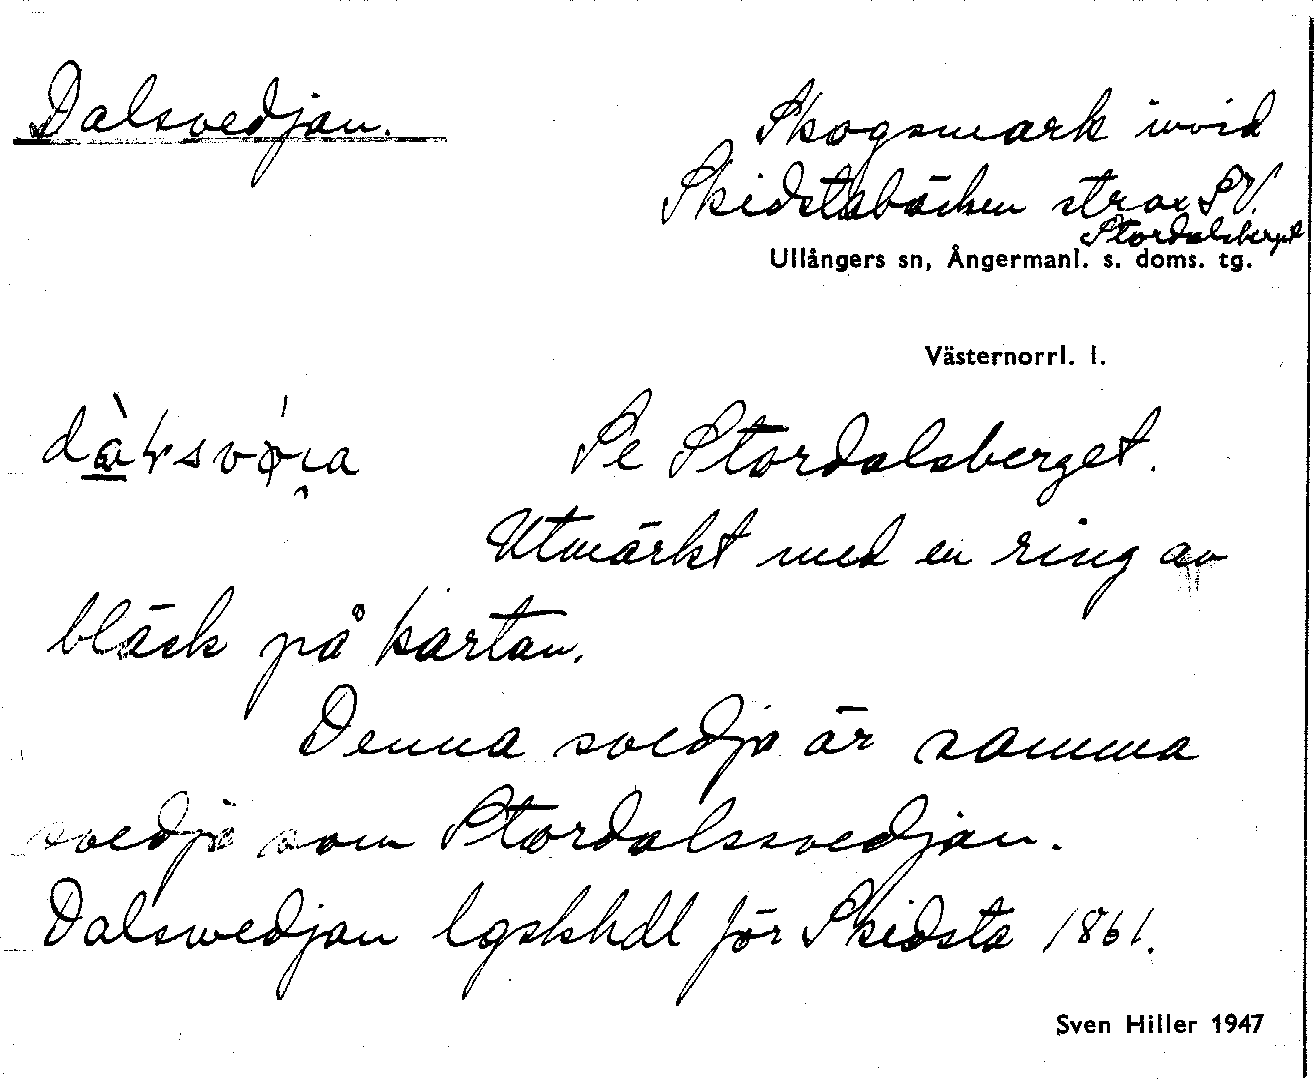 Dalsvedjan.
Skogsmark invid
Skidstabäcken strax SV.
Stordalsberget
Ullångers sn, Ångermanl. s. doms. tg.
Västernorrl. l.
Se Stordalsberget.
Utmärkt med en ring av
bläck på kartan.
Denna svedja är samma
svedja som Stordalssvedjan.
Dalswedjan lgskhdl för Skidsta 1861.
Sven Hiller 1947